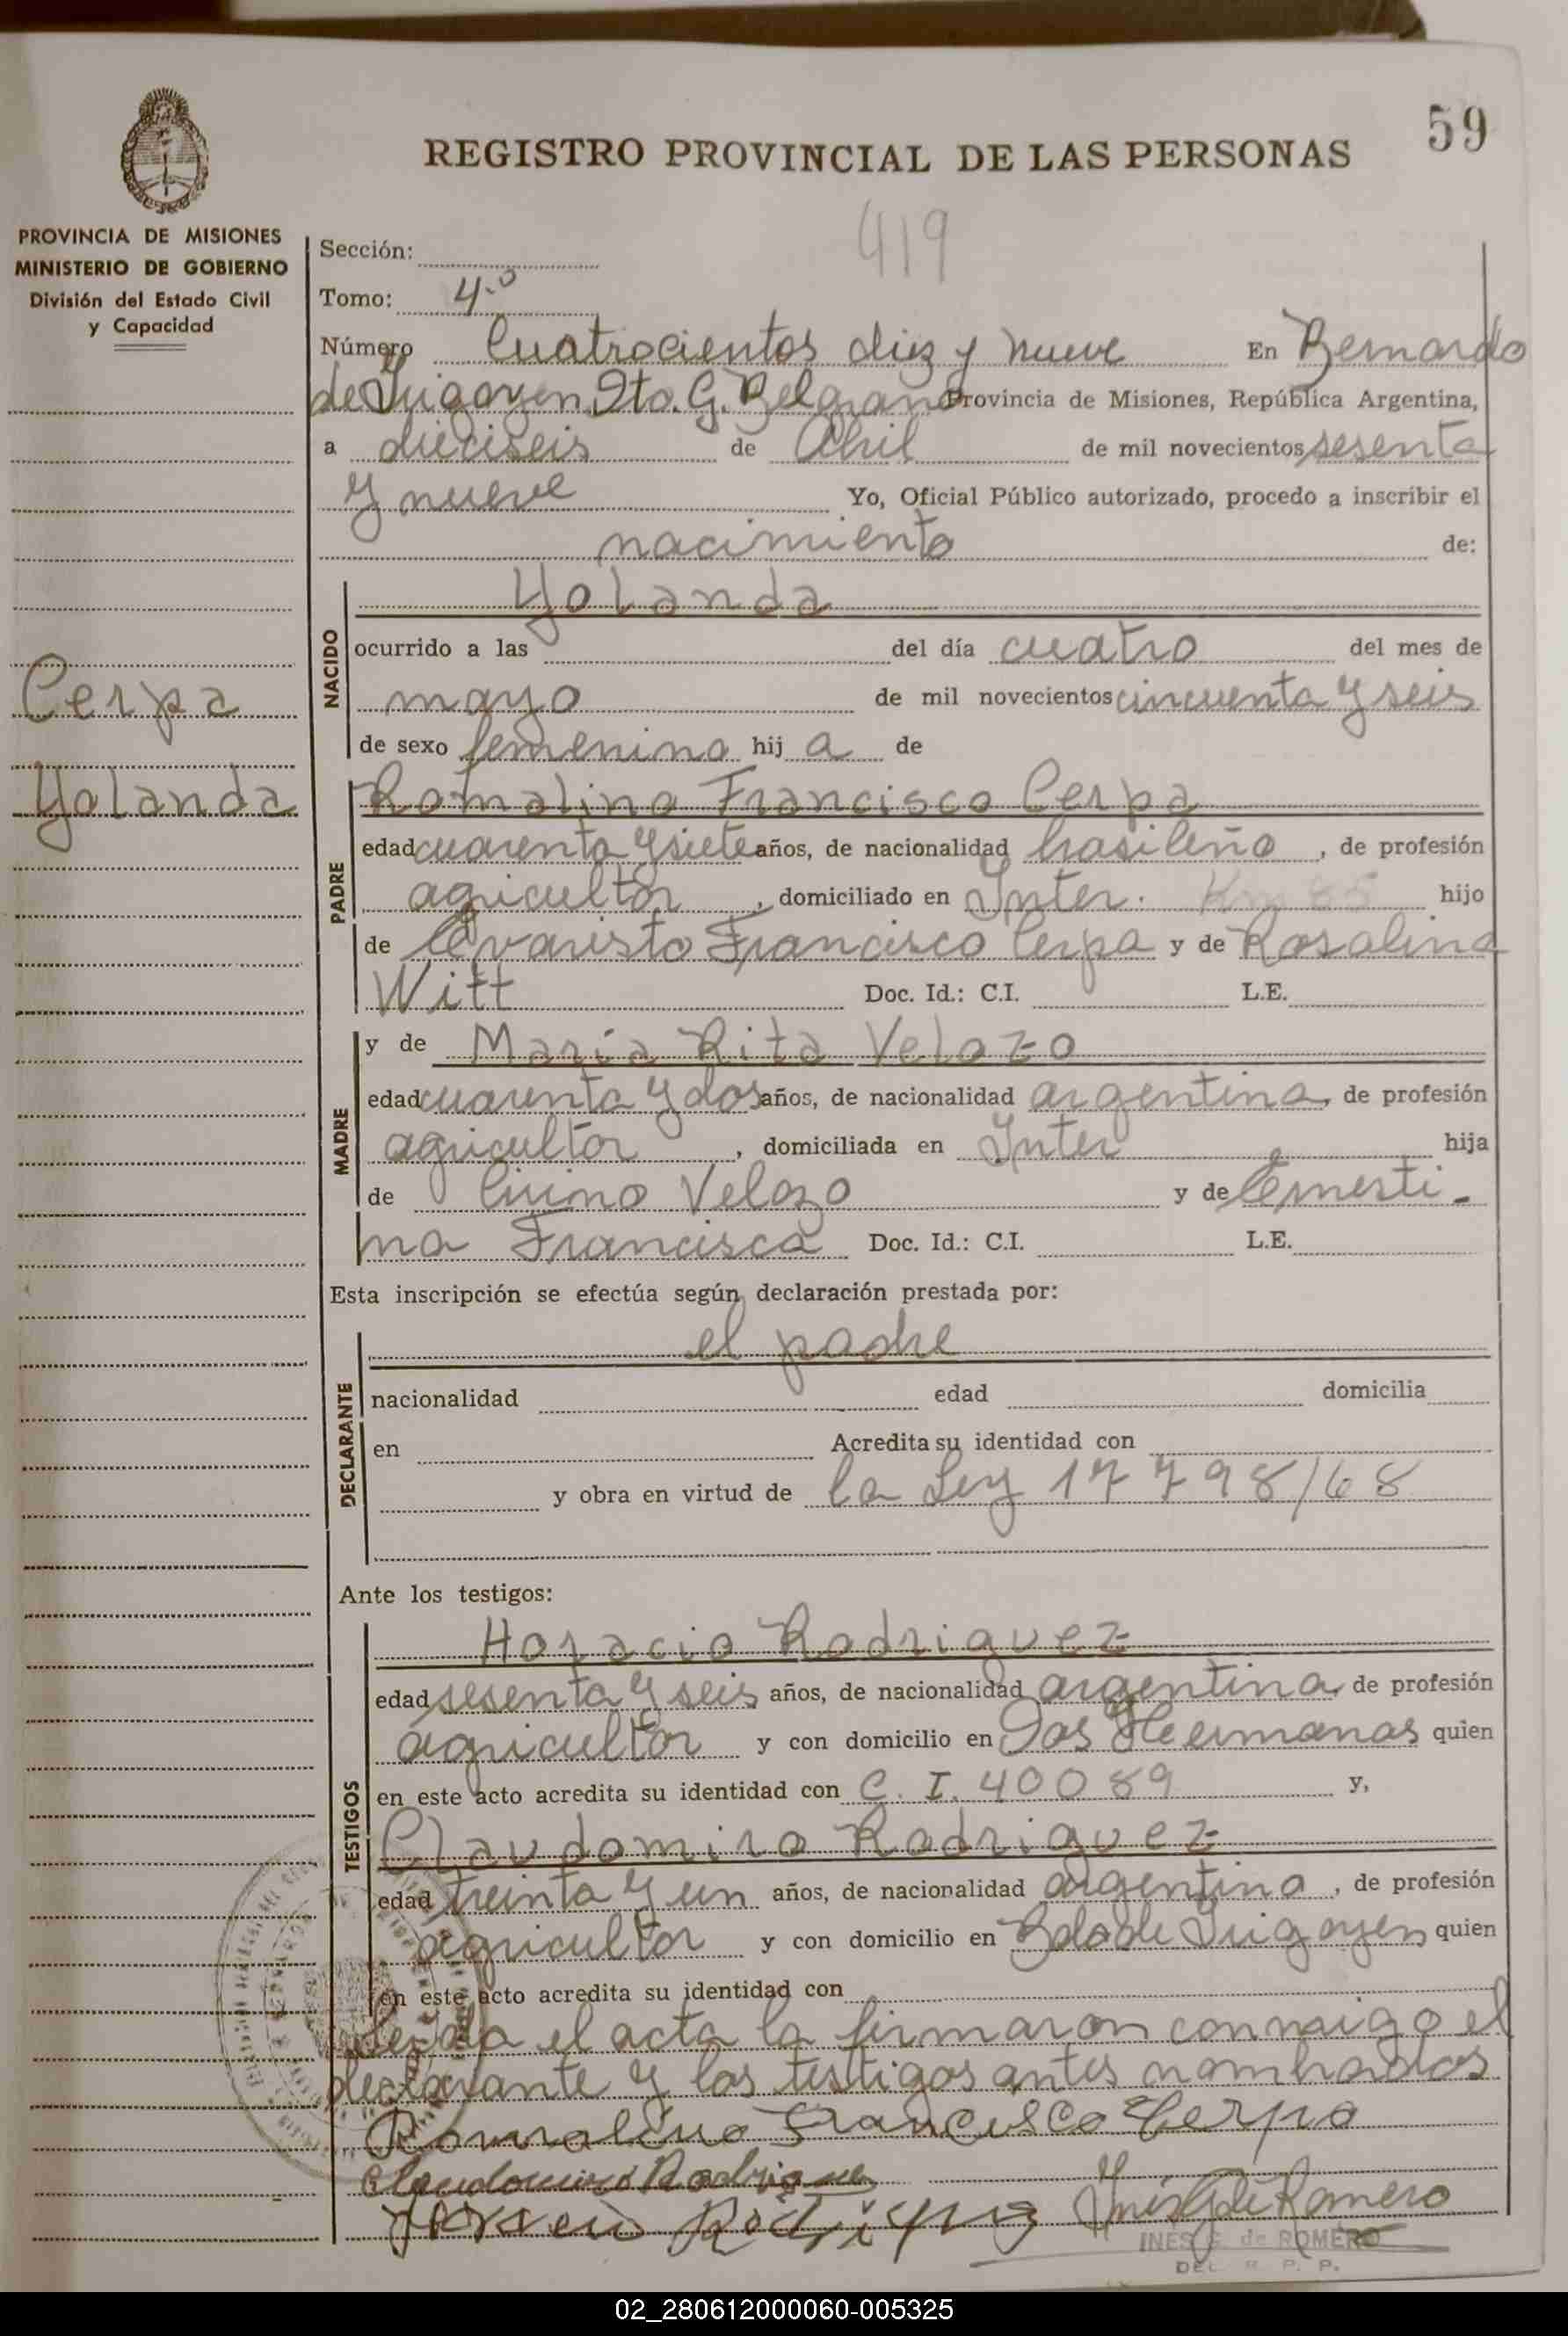 59
REGISTRO PROVINCIAL DE LAS PERSONAS
419
PROVINCIA DE MISIONES
MINISTERIO DE GOBIERNO
División del Estado Civil
y Capacidad
Sección:
Tomo: 4.º
Número Cuatrocientos diez y nueve En Bernardo
de Irigoyen Dto. G. Belgrano Provincia de Misiones, República Argentina,
a dieciseis de Abril de mil novecientos sesenta
y nueve Yo, Oficial Público autorizado, procedo a inscribir el
nacimiento de:
Yolanda
NACIDO
ocurrido a las del día cuatro del mes de
Cerpa
mayo de mil novecientos cincuenta y seis
de sexo femenino hij a de
Yolanda
Romalino Francisco Cerpa
PADRE
edad cuarenta y siete años, de nacionalidad brasileño, de profesión
agricultor, domiciliado en Inter. Km hijo
de Evaristo Francisco Cerpa y de Rosalina
Witt Doc. Id.: C.I. L.E.
y de Maria Rita Velozo
MADRE
edad cuarenta y dos años, de nacionalidad argentina, de profesión
agricultor, domiciliada en Inter hija
de Velozo y de Ernesti-
na Francisca Doc. Id.: C.I. L.E.
Esta inscripción se efectúa según declaración prestada por:
el padre
DECLARANTE
nacionalidad edad domicilia
en Acredita su identidad con
y obra en virtud de la Ley 17798/68
Ante los testigos:
Horacio Rodriguez
TESTIGOS
edad sesenta y seis años, de nacionalidad argentina, de profesión
agricultor y con domicilio en Dos Hermanas quien
en este acto acredita su identidad con C. I. 40089 y,
Claudomiro Rodriguez
edad treinta y un años, de nacionalidad argentina, de profesión
agricultor y con domicilio en Bdo de Irigoyen quien
en este acto acredita su identidad con
leida el acta la firmaron conmigo el
declarante y los testigos antes nombrados
Romalino Francisco Cerpa
Claudomiro Rodrigues
Horacio Rodriguez Inés G de Romero
INES G. de ROMERO
DEL. R. P. P.
02_280612000060-005325